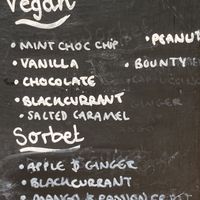 Vegan
• MINT CHOC CHIP
• PEANUT
• VANILLA
• BOUNTY
• CHOCOLATE
• BLACKCURRANT
• SALTED CARAMEL
Sorbet
• APPLE & GINGER
• BLACKCURRANT
• MANGO & PASSION